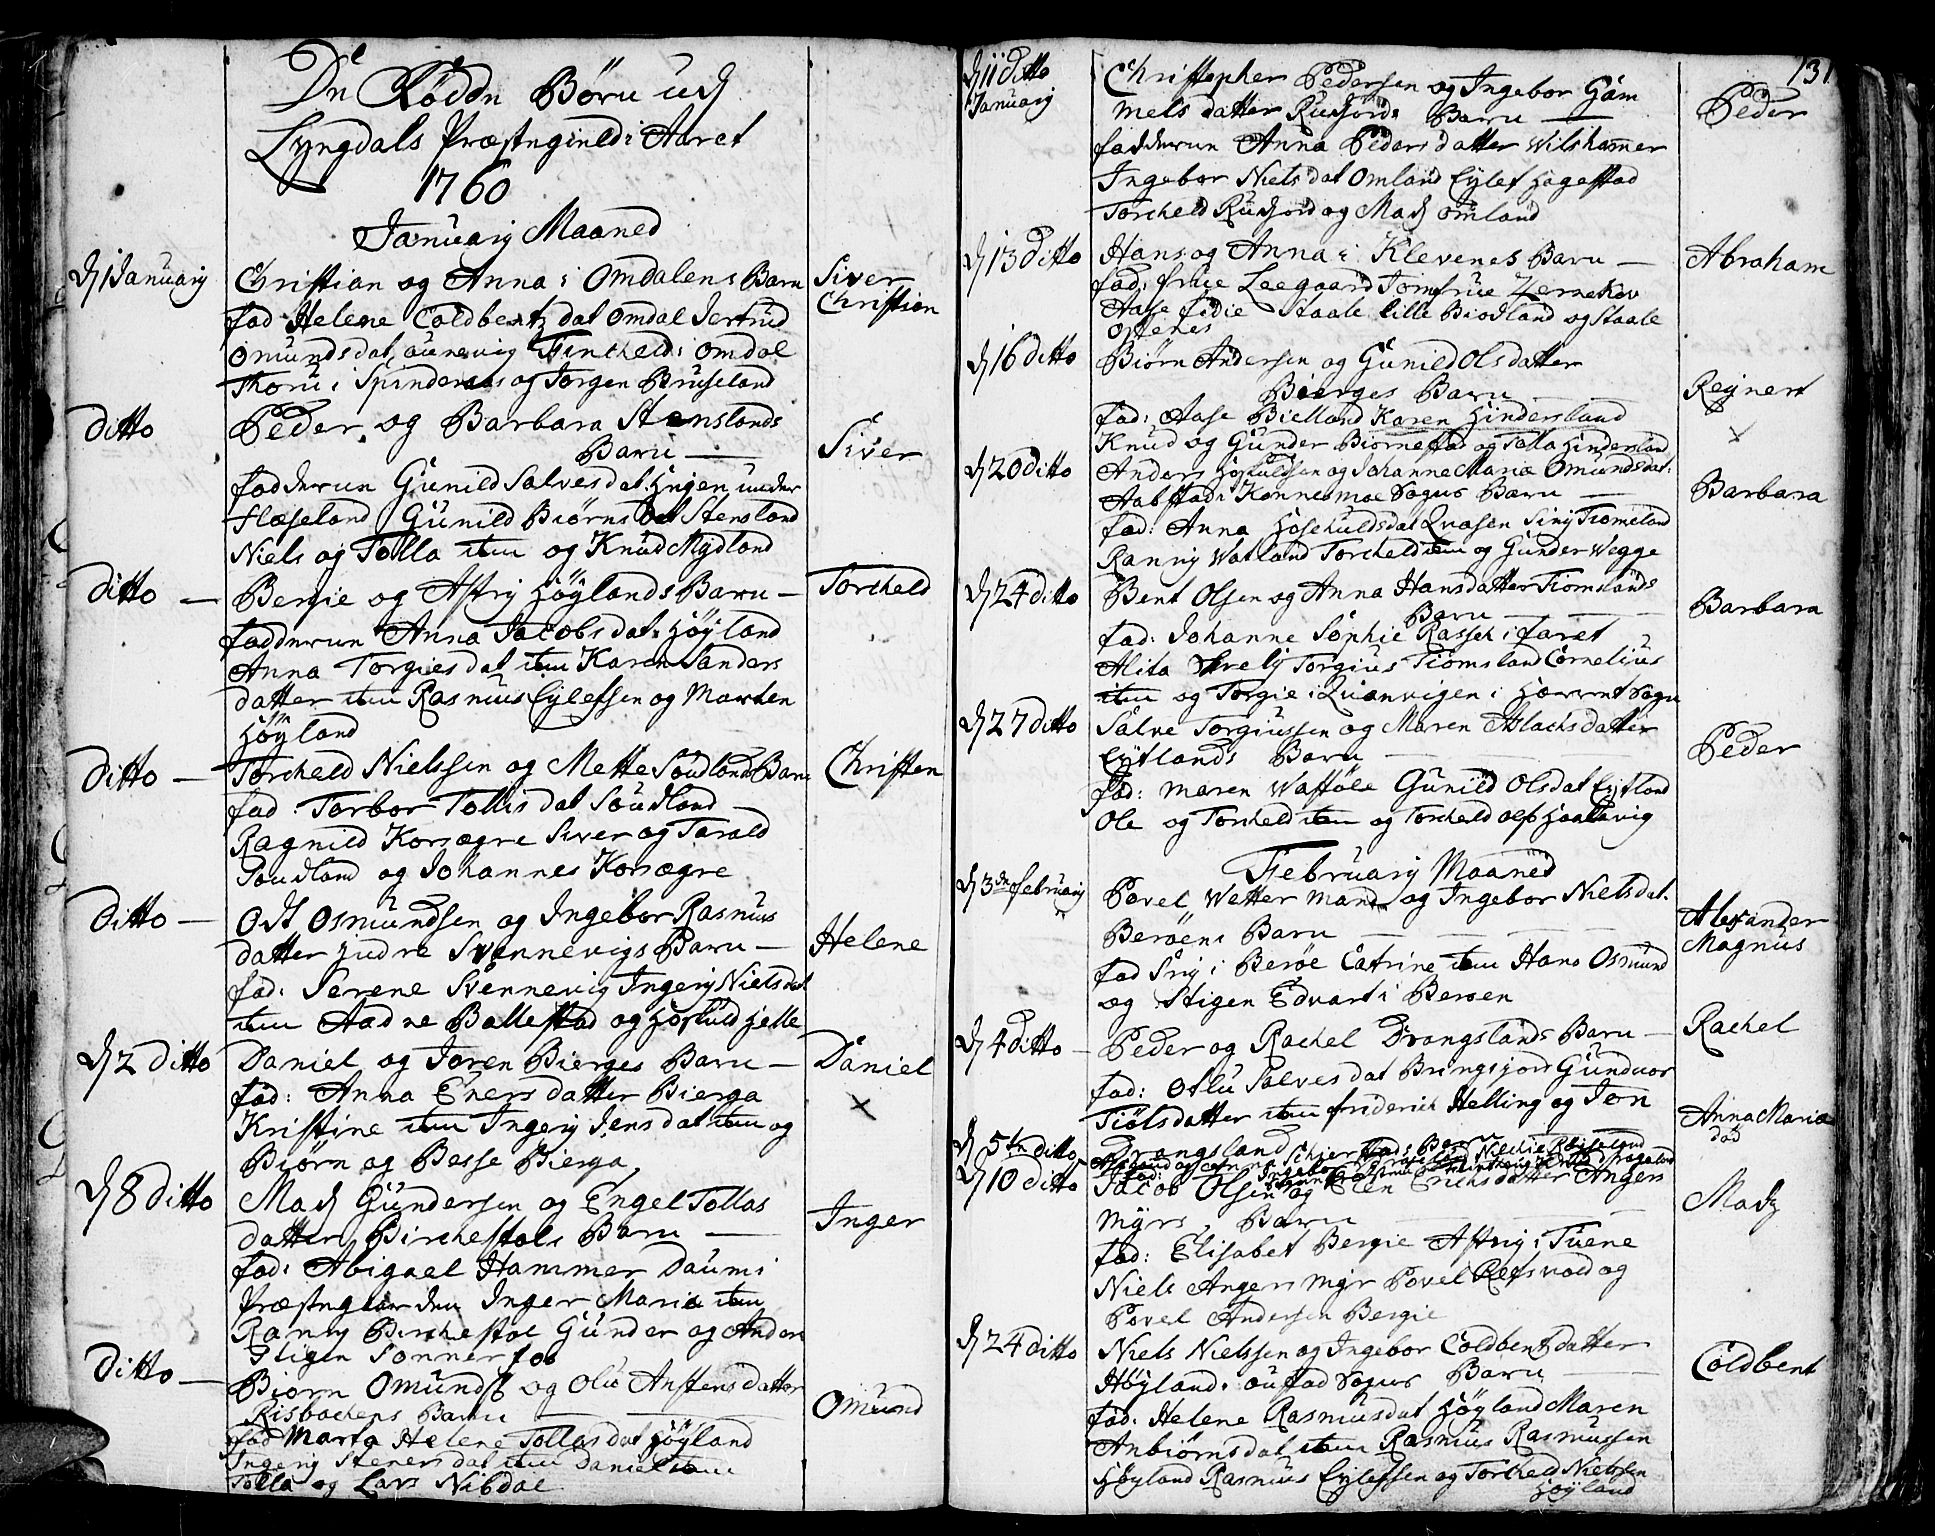 Dn Födde Børn udj
Lyngdals Præstegield i Aaret
1760
January Maaned
dj 1 January
Christian og Anna i Omdalens Barn
Siver
Christian
fad Helene Coldbentz dat Omdal Jertrud
Omundsdat, aunevig Tintheld i Omdal
Thoru i Spinderaas og Jorgen Bruseland
ditto
Peder og Barbara Stenslands
Barn
Siver
fadderen Gunild Salvesdat Eyjen under
Flæseland Gunild Biørnsdat Stensland
Niels og Tolla item og Knud Mydland
ditto
Bergie og Astrj Höylands Barn
Torcheld
fadderen Anna Jacobsdat Höyland
Anna Torgiesdat item Karen Sanders
datter item Rasmus Eylefsen og Marthen
Höyland
ditto
Torcheld Nielssen og Mette Soudlands Barn
Christen
fad Torbor Tollis dat Soudland
Ragnild Korsægre Siver og Tarald
Soudland og Johannes Korsægre
ditto
Odt Osmundsen og Ingebor Rasmus
datter Indre Svennevigs Barn
Helene
fad: Serene Svennevig Ingerj Nielsdat
item Aadne Ballestad og Höskuld Jelle
dj 2 ditto
Daniel og Joren Bierges Barn
Daniel
fad: Anna Enersdatter Bierga
Kristine item Ingerj Jensdat item og
Biørn og Basse Bierga
dj 8 ditto
Madj Gundersen og Engel Tollas
datter Birchestols Barn
Inger
fad: Abigael Hammer Daumi
Præstegaarden Inger Maria item
Ranny Berchestol Gunder og Anders
Stigen Sonnerfos
ditto
Biorn Omundss og Olu Anstensdatter
Risbackens Barn
Omund
fad Marta Helene Tollasdat Höyland
Ingerj Stenersdat item Daniel item
Tolla og Lars Nibdal
131
dj 11 ditto
January
Christopher Pedersen og Ingebor Gam
mels datter Rusfjords Barn
Peder
fadderen Anna Pedersdatter Wilshamer
Ingebor Nielsdat Omland Eylef Hagestad
Torcheld Rusfjord og Madj Omland
dj 13 ditto
Hans og Anna i Klevenes Barn
Abraham
fad: frue Leegaard Jomfrue Zernekov
Aase Lidie Staale Lille Biodland og Staale
Opsenes
dj 16 ditto
Biørn Andersen og Gunild Olsdatter
Bierges Barn
Reynert
fad: Aase Bielland Karen Hindersland
Knud og Gunder Biørnestad og Tolla Hindersland
dj 20 ditto
Anders Höskuldsen og Johanne Maria Omundsdat:
Aabstad i Konnesmoe Sogns Barn
Barbara
fad: Anna Höskuldsdat Quasen Sirj Tiomeland
Ranny Watland Torcheld item og Gunder Wegge
dj 24 ditto
Bent Olsen og Anna Hansdatter Tiomslands
Barn
Barbara
fad: Johanne Sophie Rasch i faret
Alita Skrelj Torgius Tiomsland Cornelius
item og Torgie i Quanvigen i Hærrent Sogn
dj 27 ditto
Salve Torgiussen og Maren Aslachsdatter
Eytlands Barn
Peder
fad: Maren Waffole Gunild Olsdat Eytland
Ole og Torcheld item og Torcheld Ols Haalevig
February Maaned
dj 3dn February
Povel Watter Mand og Ingebor Nielsdat.
Berøens Barn
Alexander
Magnus
fad Sirj i Berøe Catrine item Hans Osmund
og Stigen Edvart i Berøen
dj 4 ditto
Peder og Rachel Drangslands Barn
Rachel
fad: Otlu Salvesdat Bringsjord Gundvor
Tiölsdatter item friderich Helling og Jon
Drangsland
dj 5tn ditto
Anna Maria
død
dj 10 ditto
Jacob Olsen og Elen Erichsdatter Angers
Myrs Barn
Madz
fad: Elisabet Bergie Astrij i Tuene
Niels Angers Myr Povel Refsvold og
Povel Andersen Bergie
dj 24 ditto
Niels Nielssen og Ingebor Coldbentzdatter
Höyland i oufad Sogns Barn
Coldbent
fad: Helene Rasmusdat Höyland Maren
Anbiørnsdat item Rasmus Rasmussen
Höyland Rasmus Eylefsen og Torcheld Nielssen
Höyland